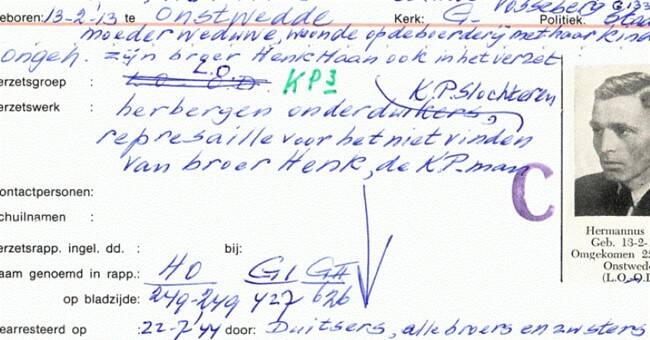 eboren: 13-2-13 te Onstwedde Kerk: G. Vosseberg G133 Politiek: Staa
moeder weduwe, woonde op de boerderij met haar kind
ongeh. = zijn broer Henk Haan ook in het verzet
erzetsgroep : L.O. KP 3
K.P. Slochteren
erzetswerk : herbergen onderduikers,
represaille voor het niet vinden
van broer Henk, de KP-man
C
ontactpersonen:
chuilnamen :
erzetsrapp. ingel. dd. : bij:
aam genoemd in rapp.: HD GI GII
op bladzijde: 249-249 427 626
earresteerd op : 22-7-'44 door: Duitsers, alle broers en zusters
Hermannus
Geb. 13-2-
Omgekomen 2
Onstwede
(L.O.